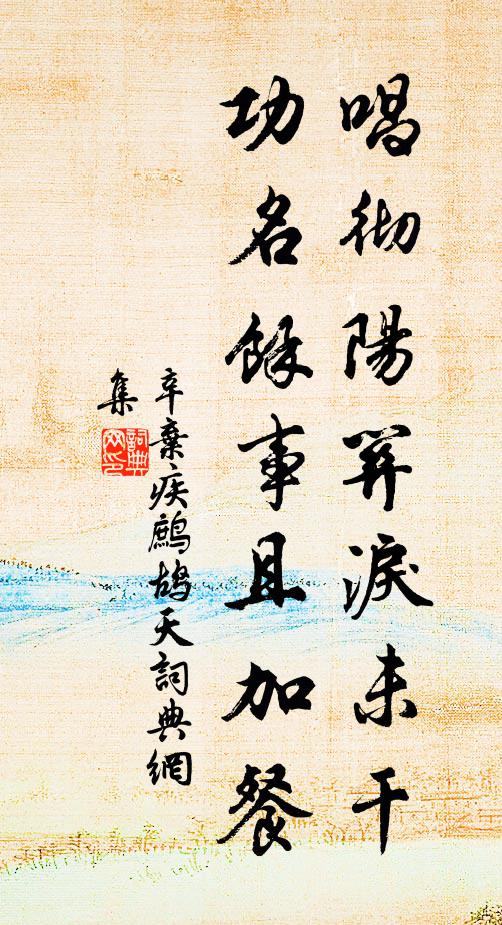 唱彻陽関淚未干
功名餘事且加餐
辛棄疾鷓鴣天詞典網
集
詞典网印